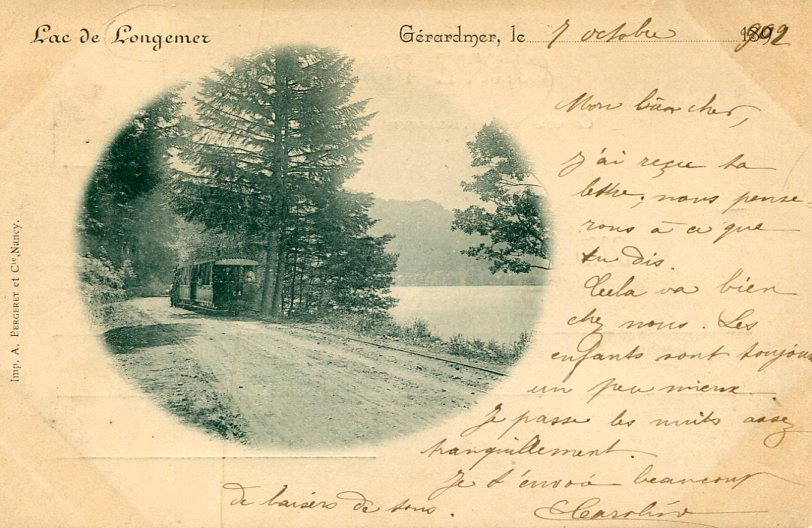 Lac de Longemer
Gérardmer, le 7 octobre
Mon bien cher,
J'ai reçue ta
lettre, nous pense
rons à ce que
tu dis.
Cela va bien
chez nous. Les
enfants sont toujours
un peu mieux.
Je passe les nuits assez
tranquillement.
Je t'envoie beaucoup
de baisers de tous.
Imp. A. PERGERET et Cie, Nancy.